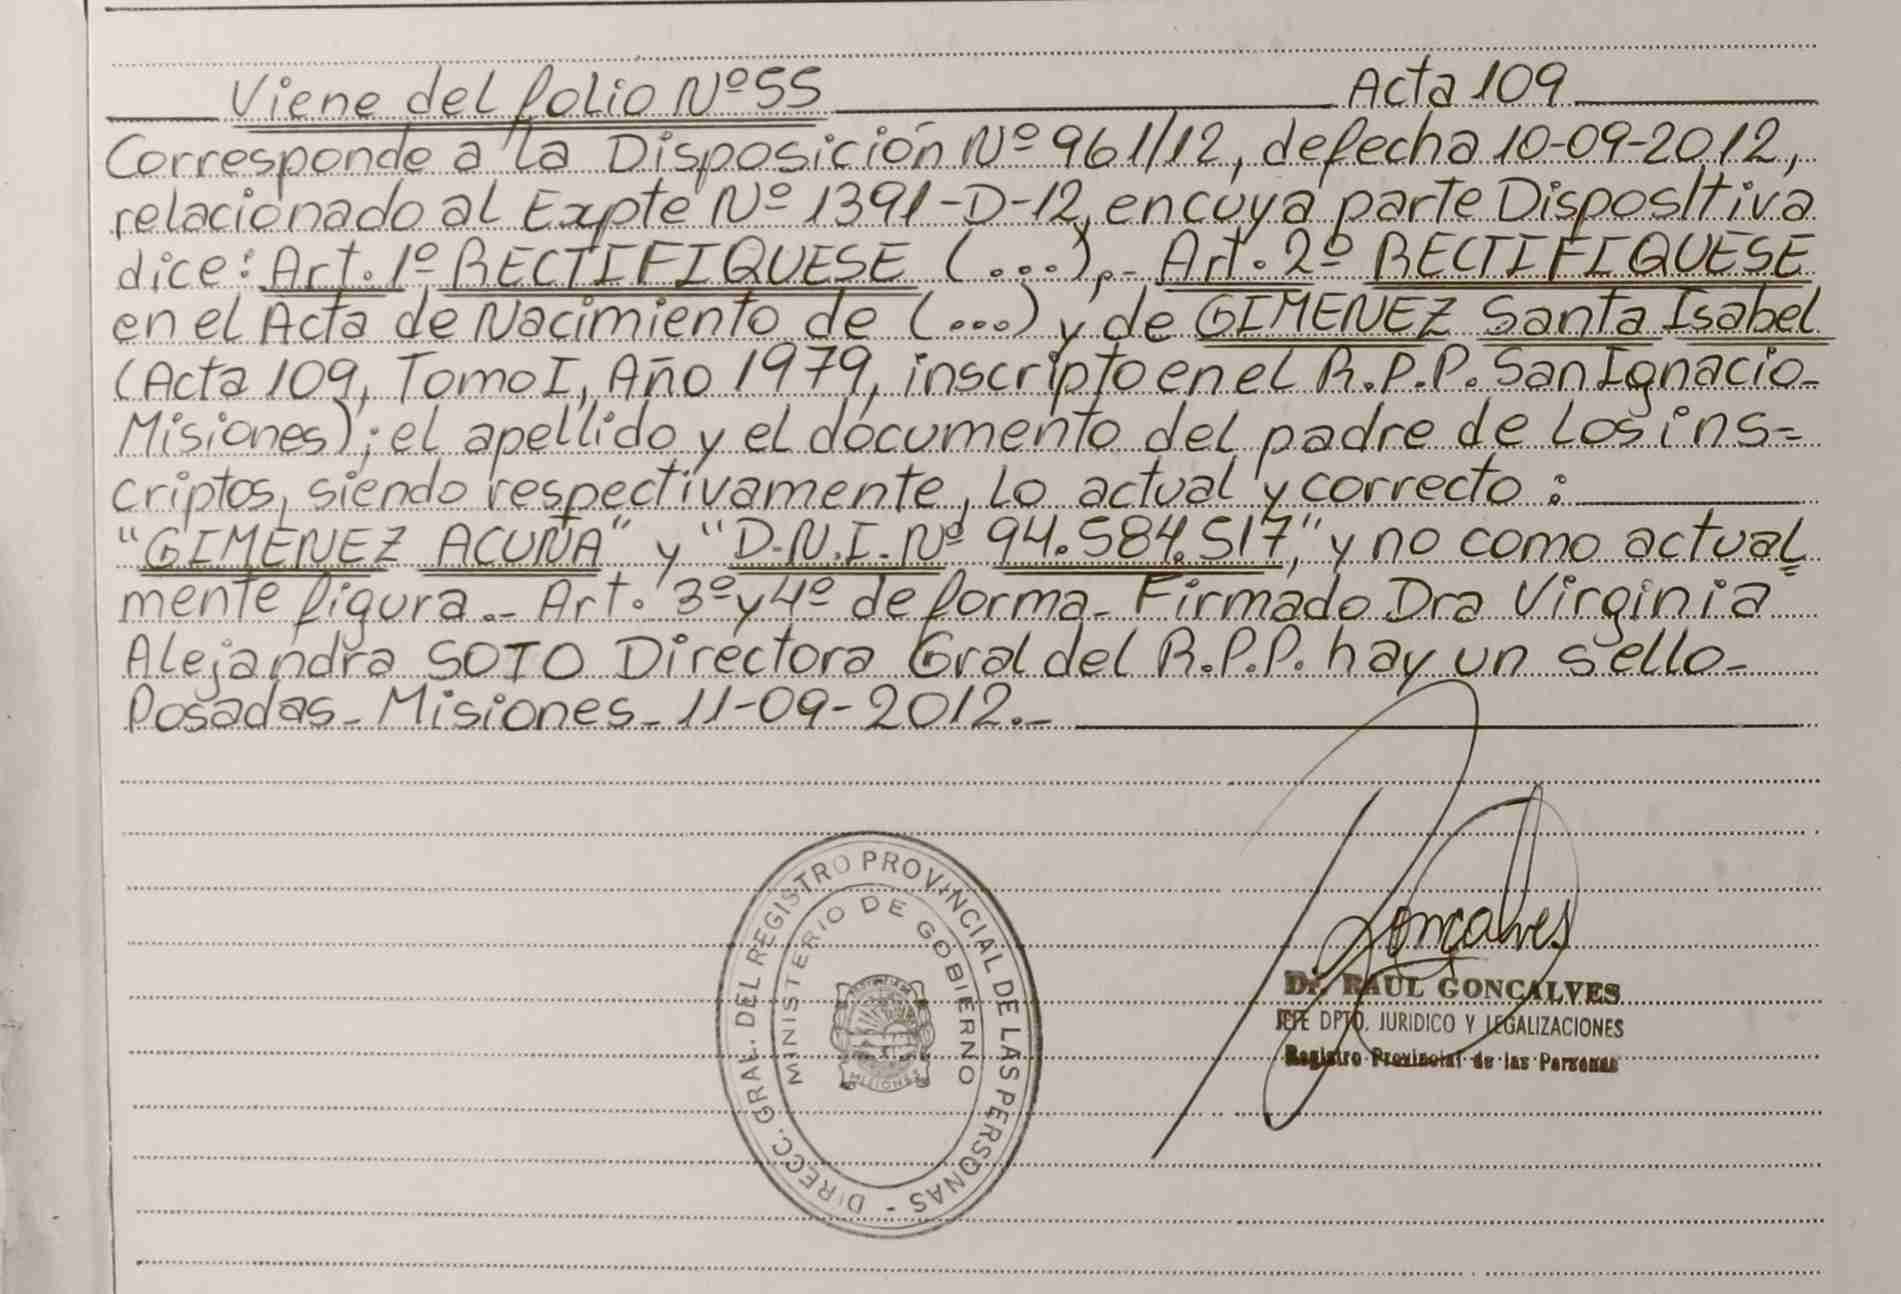 Viene del folio Nº 55 Acta 109
Corresponde a la Disposición Nº 961/12, de fecha 10-09-2012,
relacionado al Expte Nº 1391-D-12, en cuya parte Dispositiva
dice: Art. 1º RECTIFIQUESE (...).- Art. 2º RECTIFIQUESE
en el Acta de Nacimiento de (...) y de GIMENEZ Santa Isabel
(Acta 109, Tomo I, Año 1979, inscripto en el R.P.P. San Ignacio-
Misiones); el apellido y el documento del padre de los ins-
criptos, siendo respectivamente, lo actual y correcto:
"GIMENEZ ACUÑA" y "D.N.I. Nº 94.584.517," y no como actual=
mente figura.- Art. 3º y 4º de forma- Firmado Dra Virginia
Alejandra SOTO Directora Gral del R.P.P. hay un sello-
Posadas- Misiones- 11-09-2012.-
DIRECC. GRAL. DEL REGISTRO PROVINCIAL DE LAS PERSONAS -
MINISTERIO DE GOBIERNO
MISIONES
Goncalves
Dr. RAUL GONCALVES
JEFE DPTO. JURIDICO Y LEGALIZACIONES
Registro Provincial de las Personas